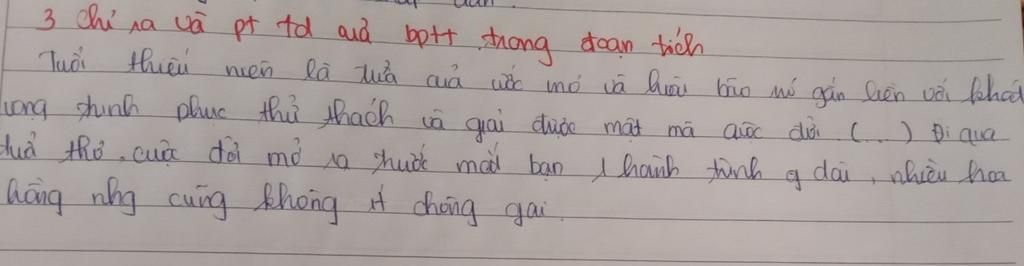 3 chỉ ra và pt td quả bptt trong đoạn tích
Tuổi thiếu niên là tuổi của ước mơ và hoài bão nó gắn liền với khát
vọng chinh phục thử thách và giải được mật mã cuộc đời (...) Đi qua
tuổi thơ, cuộc đời mở ra trước mắt bạn 1 hành trình dài, nhiều hoa
hồng nhg cũng không ít chông gai.